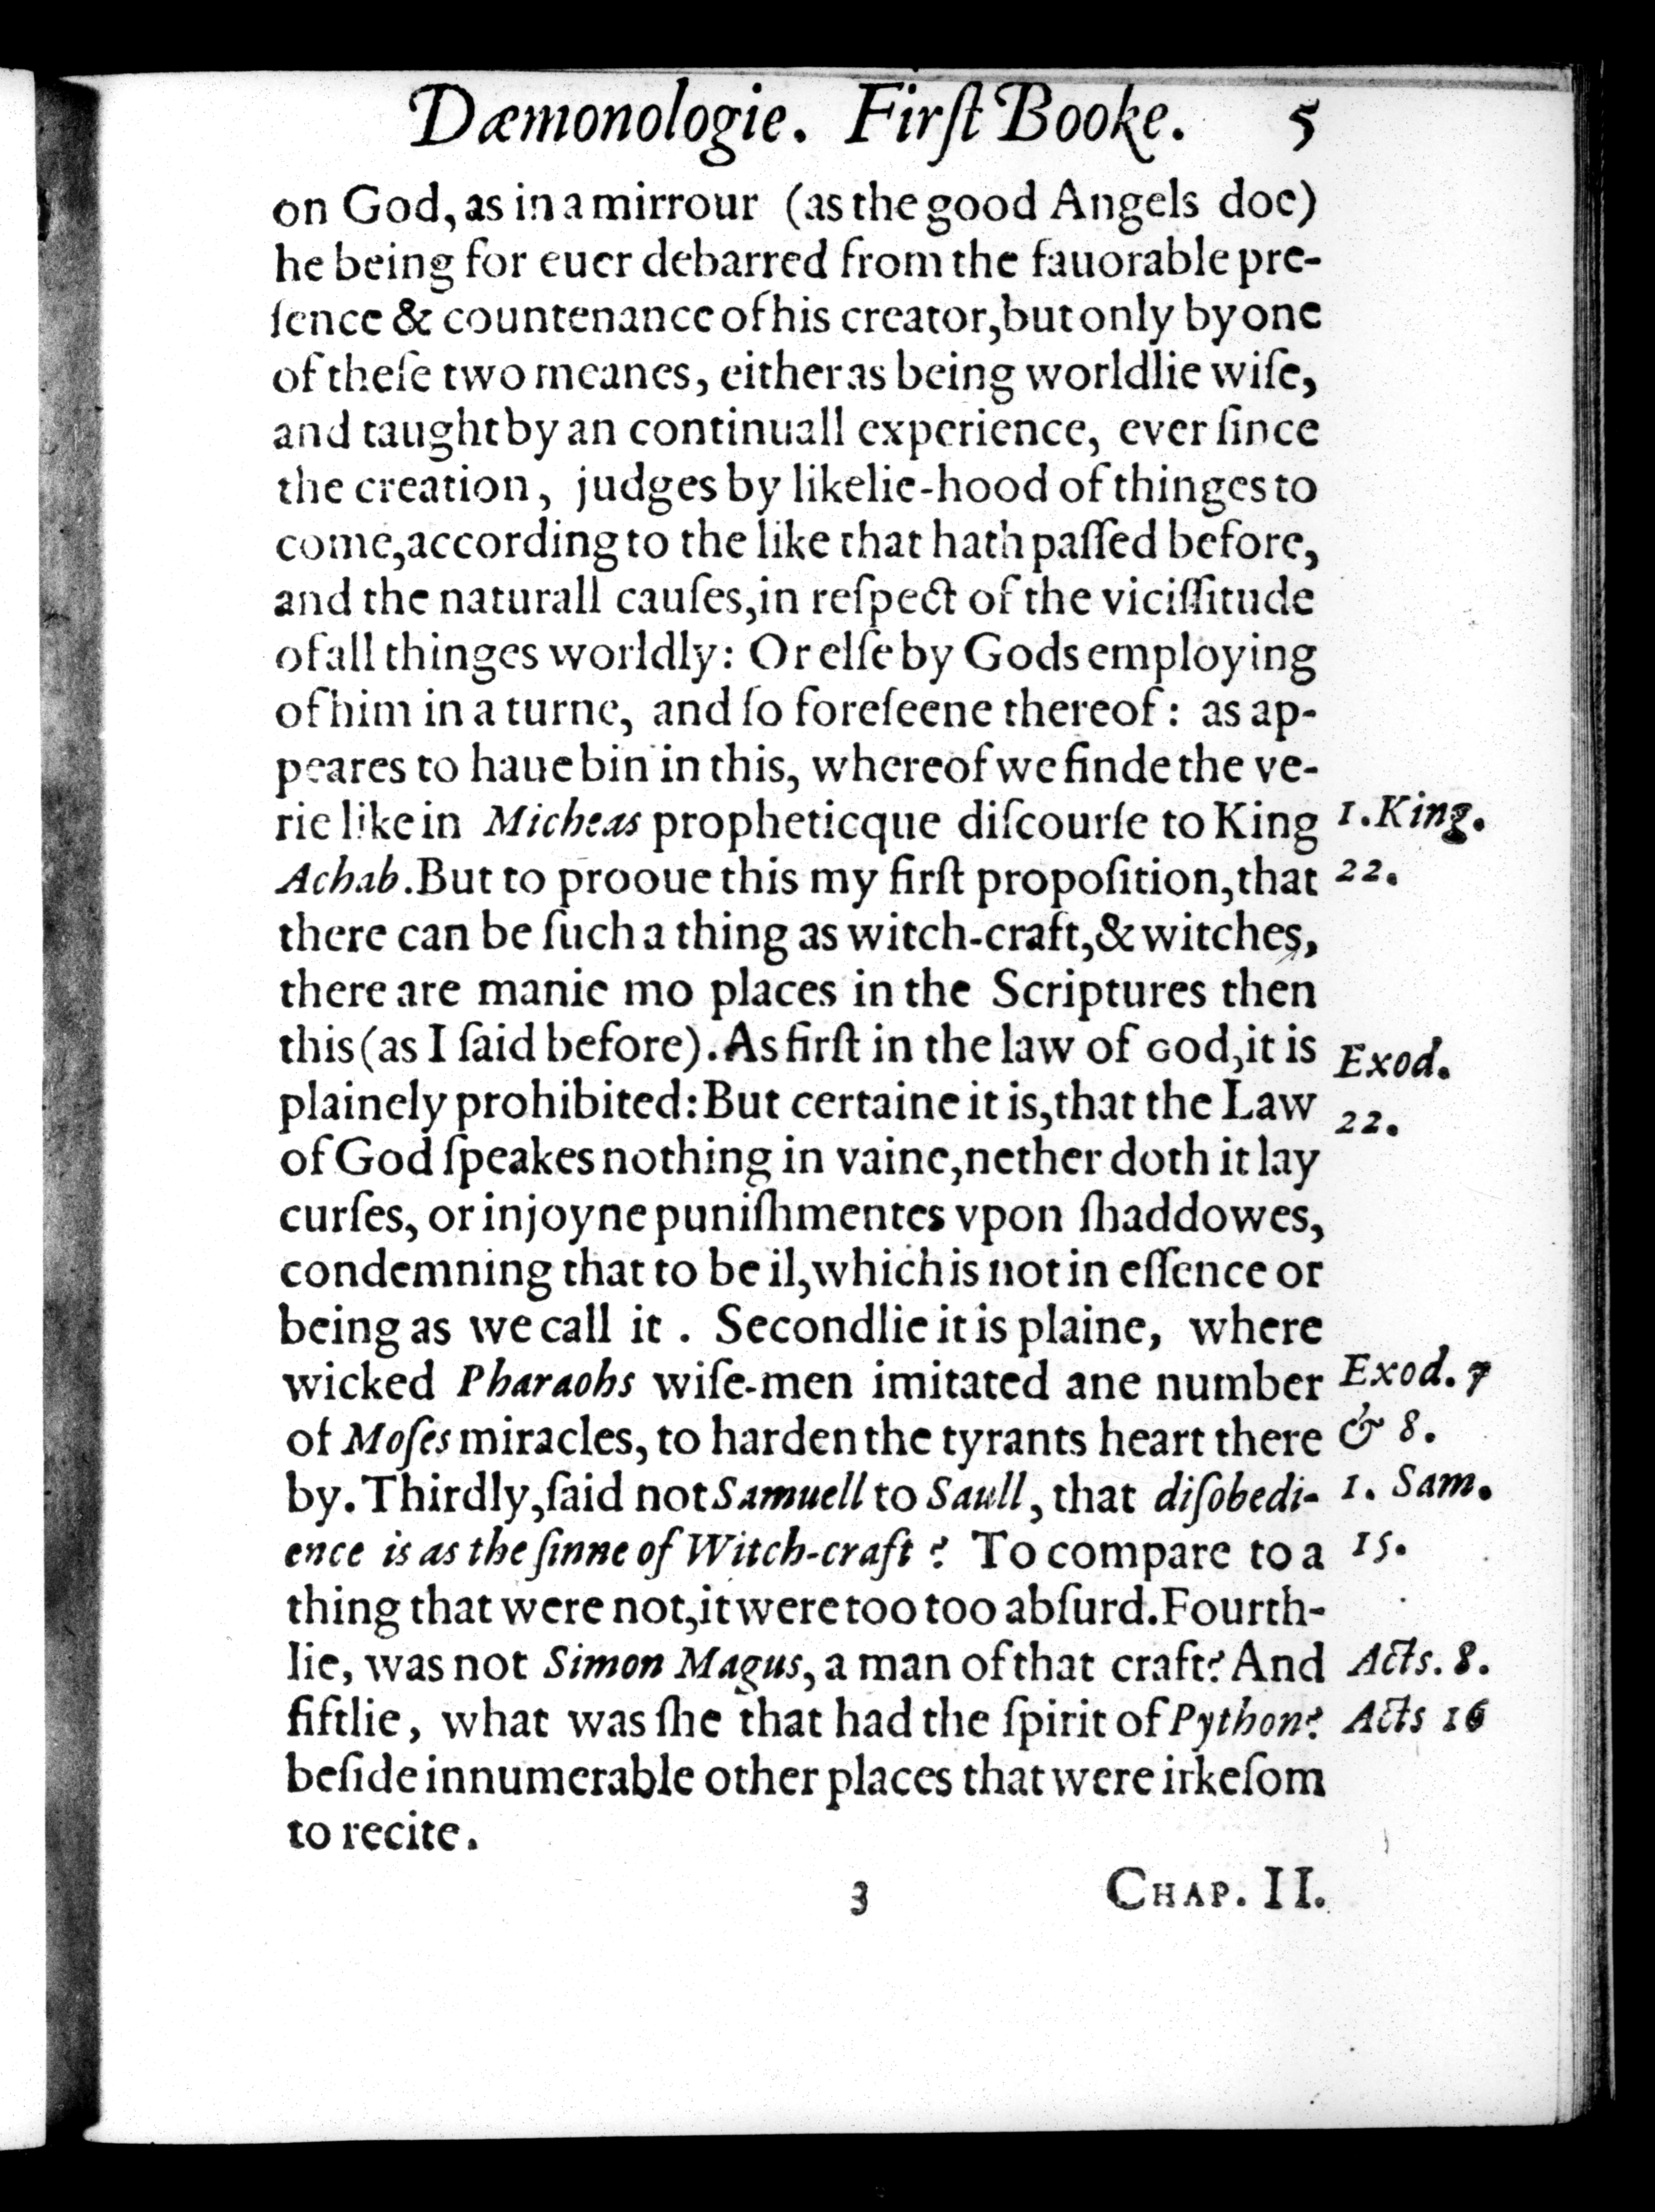 Dæmonologie. Firſt Booke. 5
on God, as in a mirrour (as the good Angels doe)
he being for euer debarred from the fauorable pre-
ſence & countenance of his creator, but only by one
of theſe two meanes, either as being worldlie wiſe,
and taught by an continuall experience, ever ſince
the creation, judges by likelie-hood of thinges to
come, according to the like that hath paſſed before,
and the naturall cauſes, in reſpect of the viciſſitude
of all thinges worldly: Or elſe by Gods employing
of him in a turne, and ſo foreſeene thereof: as ap-
peares to haue bin in this, whereof we finde the ve-
rie like in Micheas propheticque diſcourſe to King 1. King.
Achab. But to prooue this my firſt propoſition, that 22.
there can be ſuch a thing as witch-craft, & witches,
there are manie mo places in the Scriptures then
this (as I ſaid before). As firſt in the law of God, it is Exod.
plainely prohibited: But certaine it is, that the Law 22.
of God ſpeakes nothing in vaine, nether doth it lay
curſes, or injoyne puniſhmentes vpon ſhaddowes,
condemning that to be il, which is not in eſſence or
being as we call it. Secondlie it is plaine, where
wicked Pharaohs wiſe-men imitated ane number Exod. 7
of Moſes miracles, to harden the tyrants heart there & 8.
by. Thirdly, ſaid not Samuell to Saull, that diſobedi- 1. Sam.
ence is as the ſinne of Witch-craft? To compare to a 15.
thing that were not, it were too too abſurd. Fourth-
lie, was not Simon Magus, a man of that craft? And Acts. 8.
fiftlie, what was ſhe that had the ſpirit of Python? Acts 16
beſide innumerable other places that were irkeſom
to recite.
3 CHAP. II.